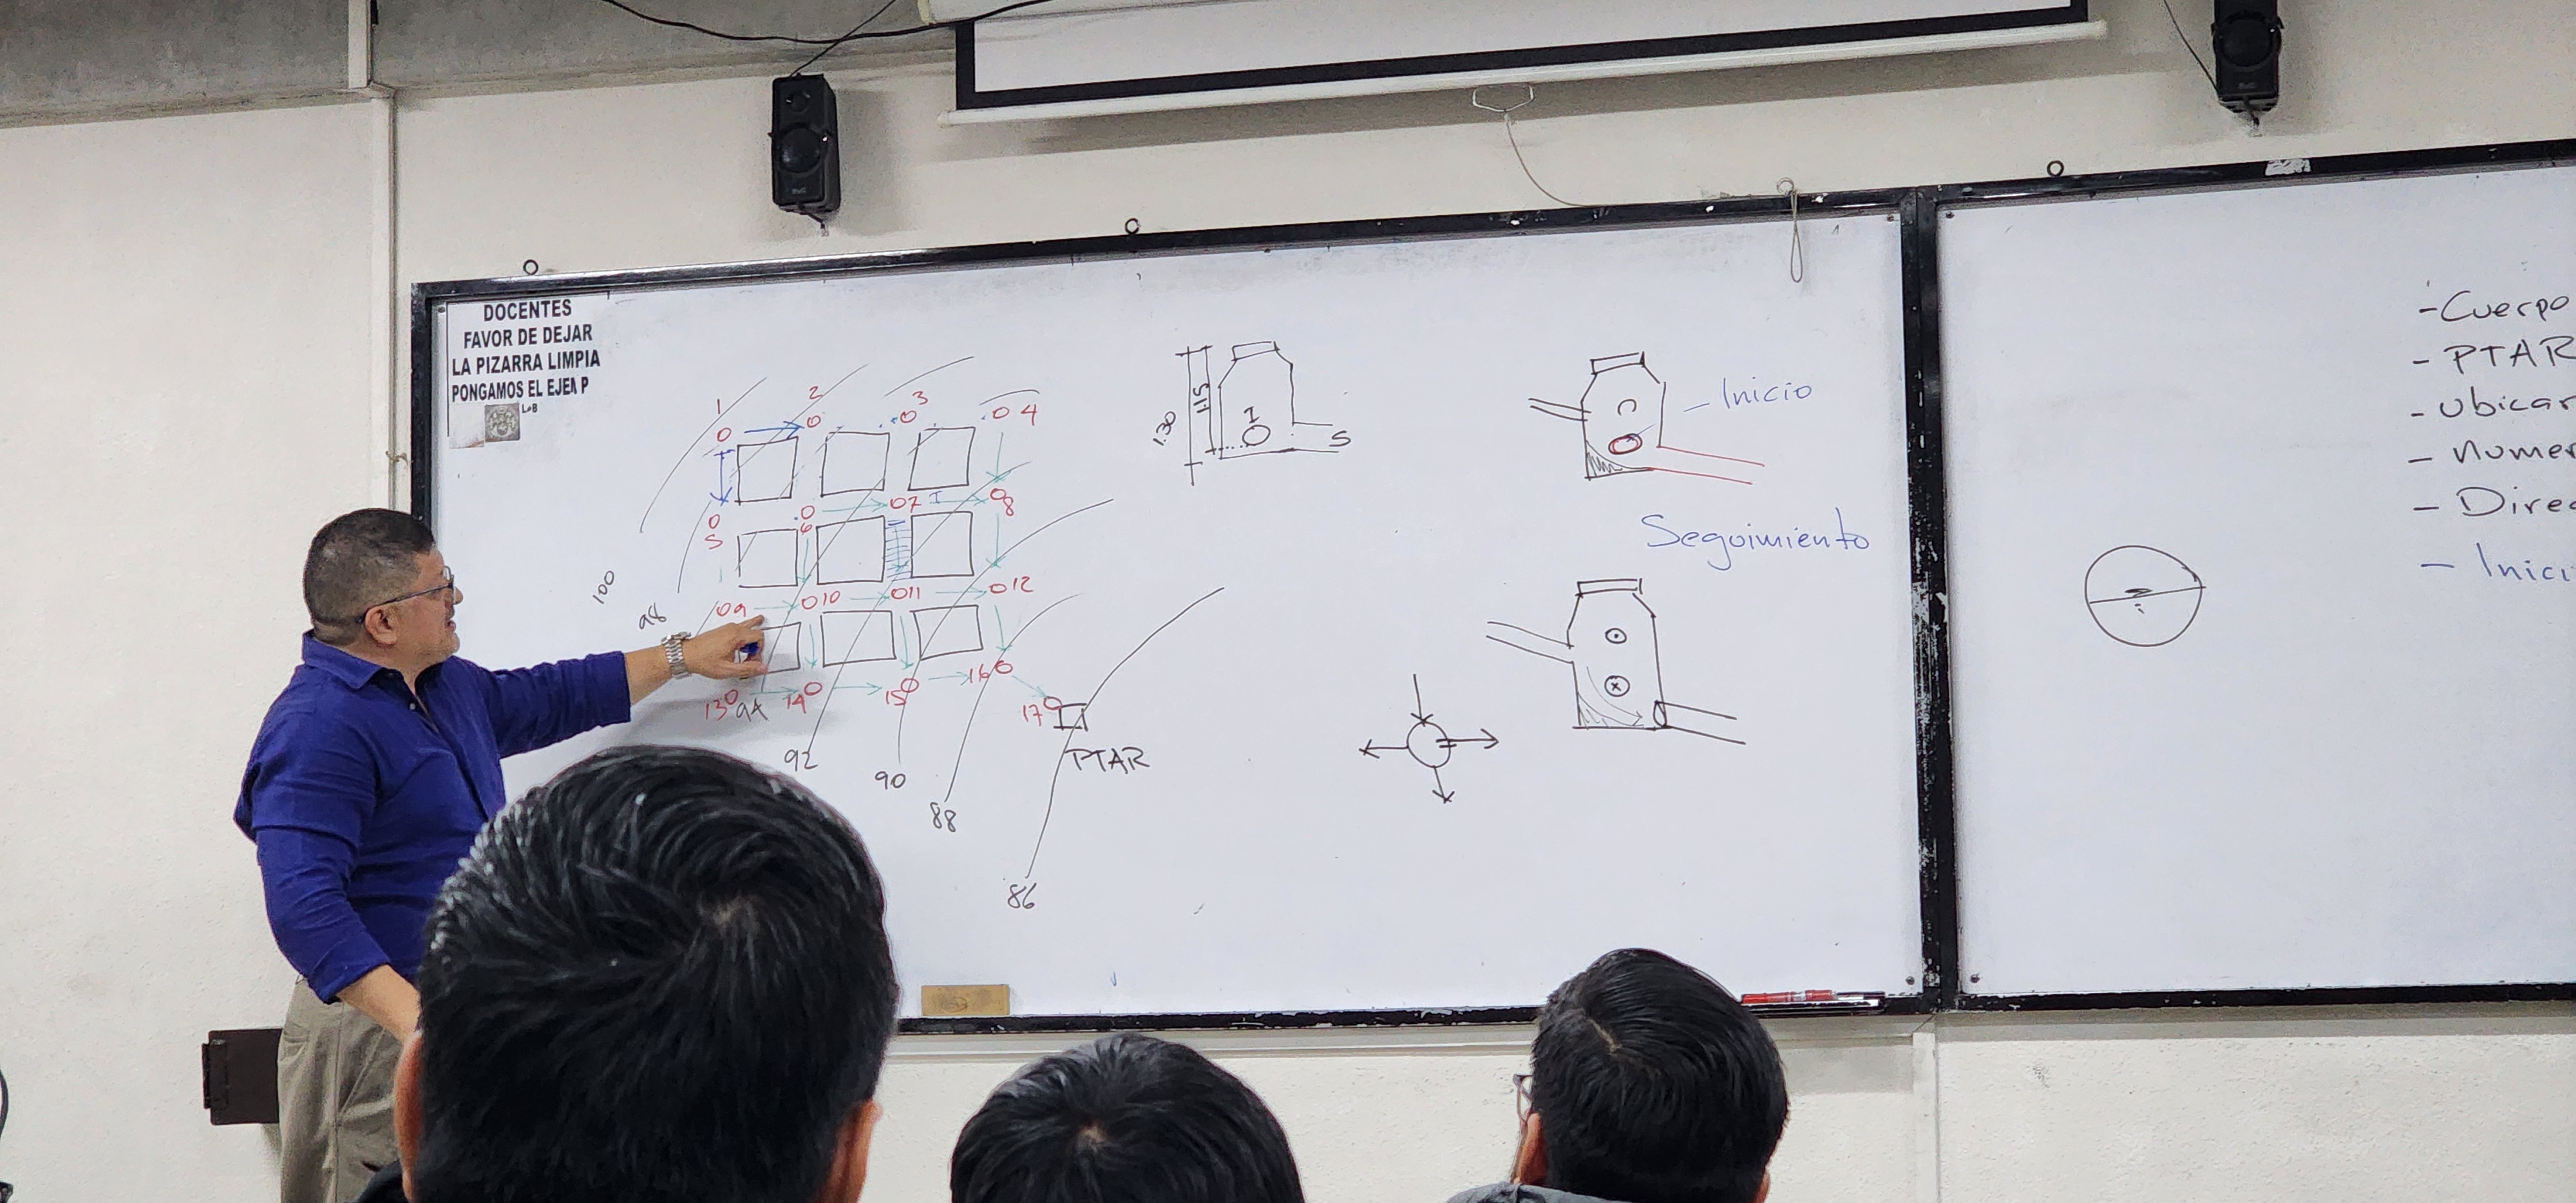 DOCENTES
FAVOR DE DEJAR
LA PIZARRA LIMPIA
PONGAMOS EL EJEM P
1
2
3
4
5
6
07
I
8
09
10
11
12
13
14
15
16
17
PTAR
100
98
94
92
90
88
86
1.30
1.15
I
S
C
- Inicio
Seguimiento
- Cuerpo
- PTAR
- Ubicar
- Numer
- Direc
- Inici